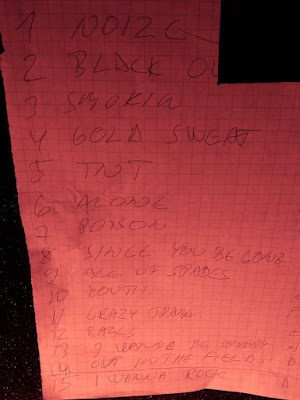 1 NOIZE
2 BLACK OU
3 SMOKIN
4 COLD SWEAT
5 TNT
6 ALONE
7 POISON
8 SINCE YOU BE GONE
9 ACE OF SPADES
10 YOUTH
11 CRAZY TRAIN
12 BALLS
13 I WANNA BE SOMEBODY
14 OUT IN THE FIELDS
15 I WANNA ROCK